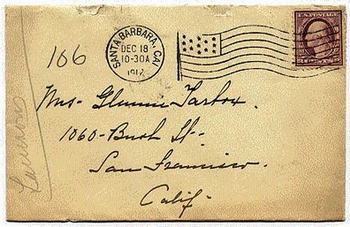 106
SANTA BARBARA, CAL
DEC 18
10-30A
1912
U.S. POSTAGE
Mrs. Glennie Tarbox
1060 - Bush St -
San Francisco.
Calif.